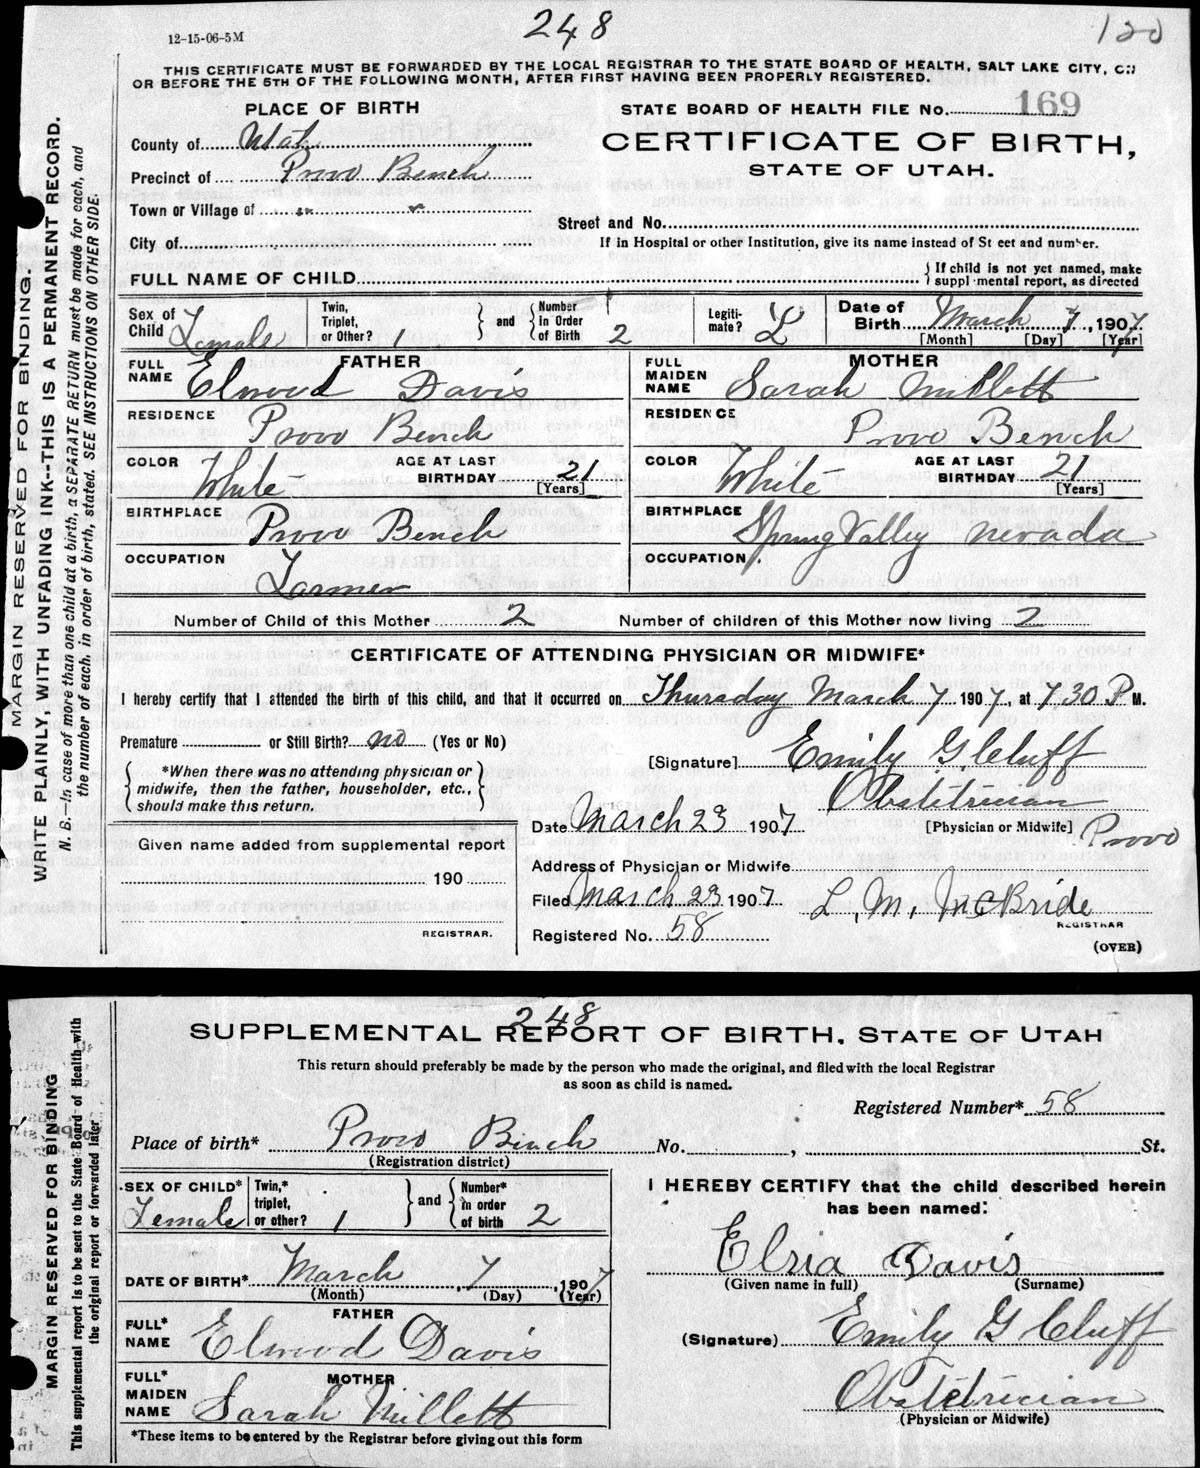 248
120
12-15-06-5M
THIS CERTIFICATE MUST BE FORWARDED BY THE LOCAL REGISTRAR TO THE STATE BOARD OF HEALTH, SALT LAKE CITY,
OR BEFORE THE 5TH OF THE FOLLOWING MONTH, AFTER FIRST HAVING BEEN PROPERLY REGISTERED.
PLACE OF BIRTH
STATE BOARD OF HEALTH FILE No. 169
CERTIFICATE OF BIRTH,
STATE OF UTAH.
County of Utah
Precinct of Provo Bench
Town or Village of
Street and No.
City of
If in Hospital or other Institution, give its name instead of St eet and number.
FULL NAME OF CHILD
If child is not yet named, make
suppl mental report, as directed
Sex of Child Female
Twin, Triplet, or Other? 1
and
Number in Order of Birth 2
Legiti-mate? L
Date of Birth March 7, 1907
[Month] [Day] [Year]
FATHER
FULL NAME Elwood Davis
MOTHER
FULL MAIDEN NAME Sarah Millett
RESIDENCE Provo Bench
RESIDENCE Provo Bench
COLOR White
AGE AT LAST BIRTHDAY 21
[Years]
COLOR White
AGE AT LAST BIRTHDAY 21
[Years]
BIRTHPLACE Provo Bench
BIRTHPLACE Spring Valley Nevada
OCCUPATION Farmer
OCCUPATION
Number of Child of this Mother 2
Number of children of this Mother now living 2
CERTIFICATE OF ATTENDING PHYSICIAN OR MIDWIFE*
I hereby certify that I attended the birth of this child, and that it occurred on Thursday March 7 1907, at 7,30 P M.
Premature or Still Birth? no (Yes or No)
[Signature] Emily G. Cluff
*When there was no attending physician or
midwife, then the father, householder, etc.,
should make this return.
Obstetrician
Date March 23 1907
[Physician or Midwife] Provo
Given name added from supplemental report
190
REGISTRAR.
Address of Physician or Midwife
Filed March 23 1907
L. M. McBride
REGISTRAR
Registered No. 58
(OVER)
MARGIN RESERVED FOR BINDING.
WRITE PLAINLY, WITH UNFADING INK--THIS IS A PERMANENT RECORD.
N. B.--In case of more than one child at a birth, a SEPARATE RETURN must be made for each, and
the number of each, in order of birth, stated. SEE INSTRUCTIONS ON OTHER SIDE.
248
SUPPLEMENTAL REPORT OF BIRTH, STATE OF UTAH
This return should preferably be made by the person who made the original, and filed with the local Registrar
as soon as child is named.
Registered Number* 58
Place of birth* Provo Bench No. , St.
(Registration district)
SEX OF CHILD* Female
Twin,* triplet, or other? 1
and
Number* in order of birth 2
I HEREBY CERTIFY that the child described herein
has been named:
Elsia Davis
(Given name in full) (Surname)
DATE OF BIRTH* March 7, 1907
(Month) (Day) (Year)
FATHER
FULL* NAME Elwood Davis
(Signature) Emily G Cluff
MOTHER
FULL* MAIDEN NAME Sarah Millett
Obstetrician
(Physician or Midwife)
*These items to be entered by the Registrar before giving out this form
MARGIN RESERVED FOR BINDING
This supplemental report is to be sent to the State Board of Health with
the original report or forwarded later